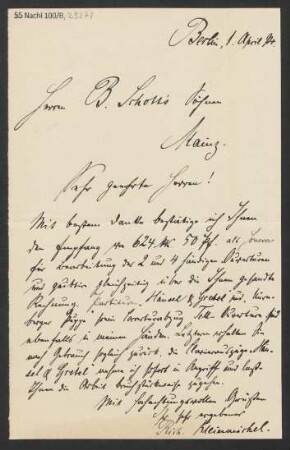 55 Nachl 100/B,
Berlin, 1. April 94.
Herren B. Schott's Söhnen
Mainz.
Sehr geehrte Herren!
Mit bestem Danke bestätige ich Ihnen
den Empfang von 624 Mk 50 Pf. als Honorar
für Bearbeitung der 2 und 4 händigen Ouvertüren
und quittire gleichzeitig über die Ihnen gesandte
Rechnung. Partituren „Hänsel & Gretel und „Nürn-
berger Puppe" sowie Tell Ouvertüre sind
ebenfalls in meinen Händen. Letztere erhalten Sie
nach Gebrauch sogleich zurück. Die Klavierauszüge Hän-
sel & Gretel nehme ich sofort in Angriff und lasse
Ihnen die Arbeit bruchstückweise zugehen.
Mit hochachtungsvollen Grüssen
Ihr ergebener
Rich. Kleinmichel.